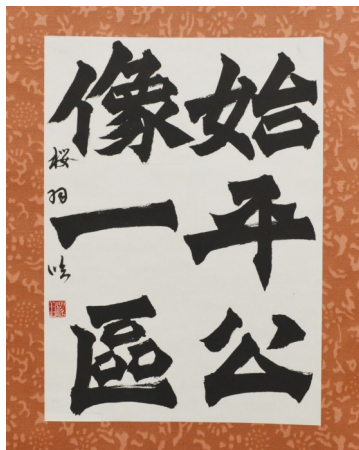 始平公
像一區
桜羽臨